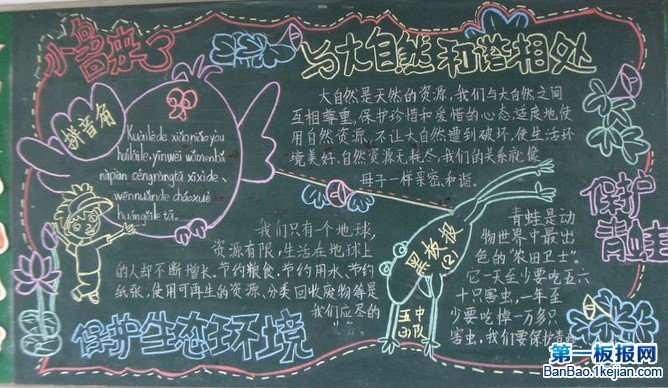 小鸟来了
与大自然和谐相处
拼音角
Kuàilède xiǎoniǎo yòu
huílaile, yīnwèi wǒmenbǎ
nàpiàn céngràngtā xǐxìde、
wēnnuǎnde cháoxué
huángěile tā。
大自然是天然的资源,我们与大自然之间
互相尊重,保护珍惜和爱惜的心态,适度地使
用自然资源,不让大自然遭到破坏,使生活环
境美好,自然资源无耗尽,我们的关系就像
母子一样亲密、和谐。
我们只有个地球,
资源有限,生活在地球上
的人却不断增长,节约粮食、节约用水、节约
纸张,使用可再生的资源、分类回收废物等是
我们应尽的
黑板报
(2)
五中
三队
保护
青蛙
青蛙是动
物世界中最出
色的“农田卫士”。
它一天至少要吃五六
十只害虫,一年至
少要吃掉一万多只
害虫,我们要保护青蛙
保护生态环境
第一板报网
BanBao.1kejian.com